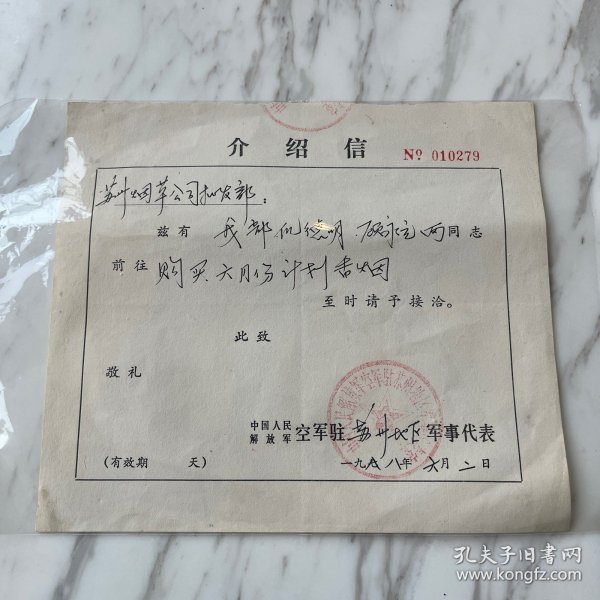 介绍信
Nº 010279
苏州烟草公司批发部：
兹有 我部 同志
前往 购买六月份计划香烟
至时请予接洽。
此致
敬礼
中国人民解放军 空军驻苏州地区军事代表
(有效期 天) 一九八八年六月二日
孔夫子旧书网
www.kongfz.com